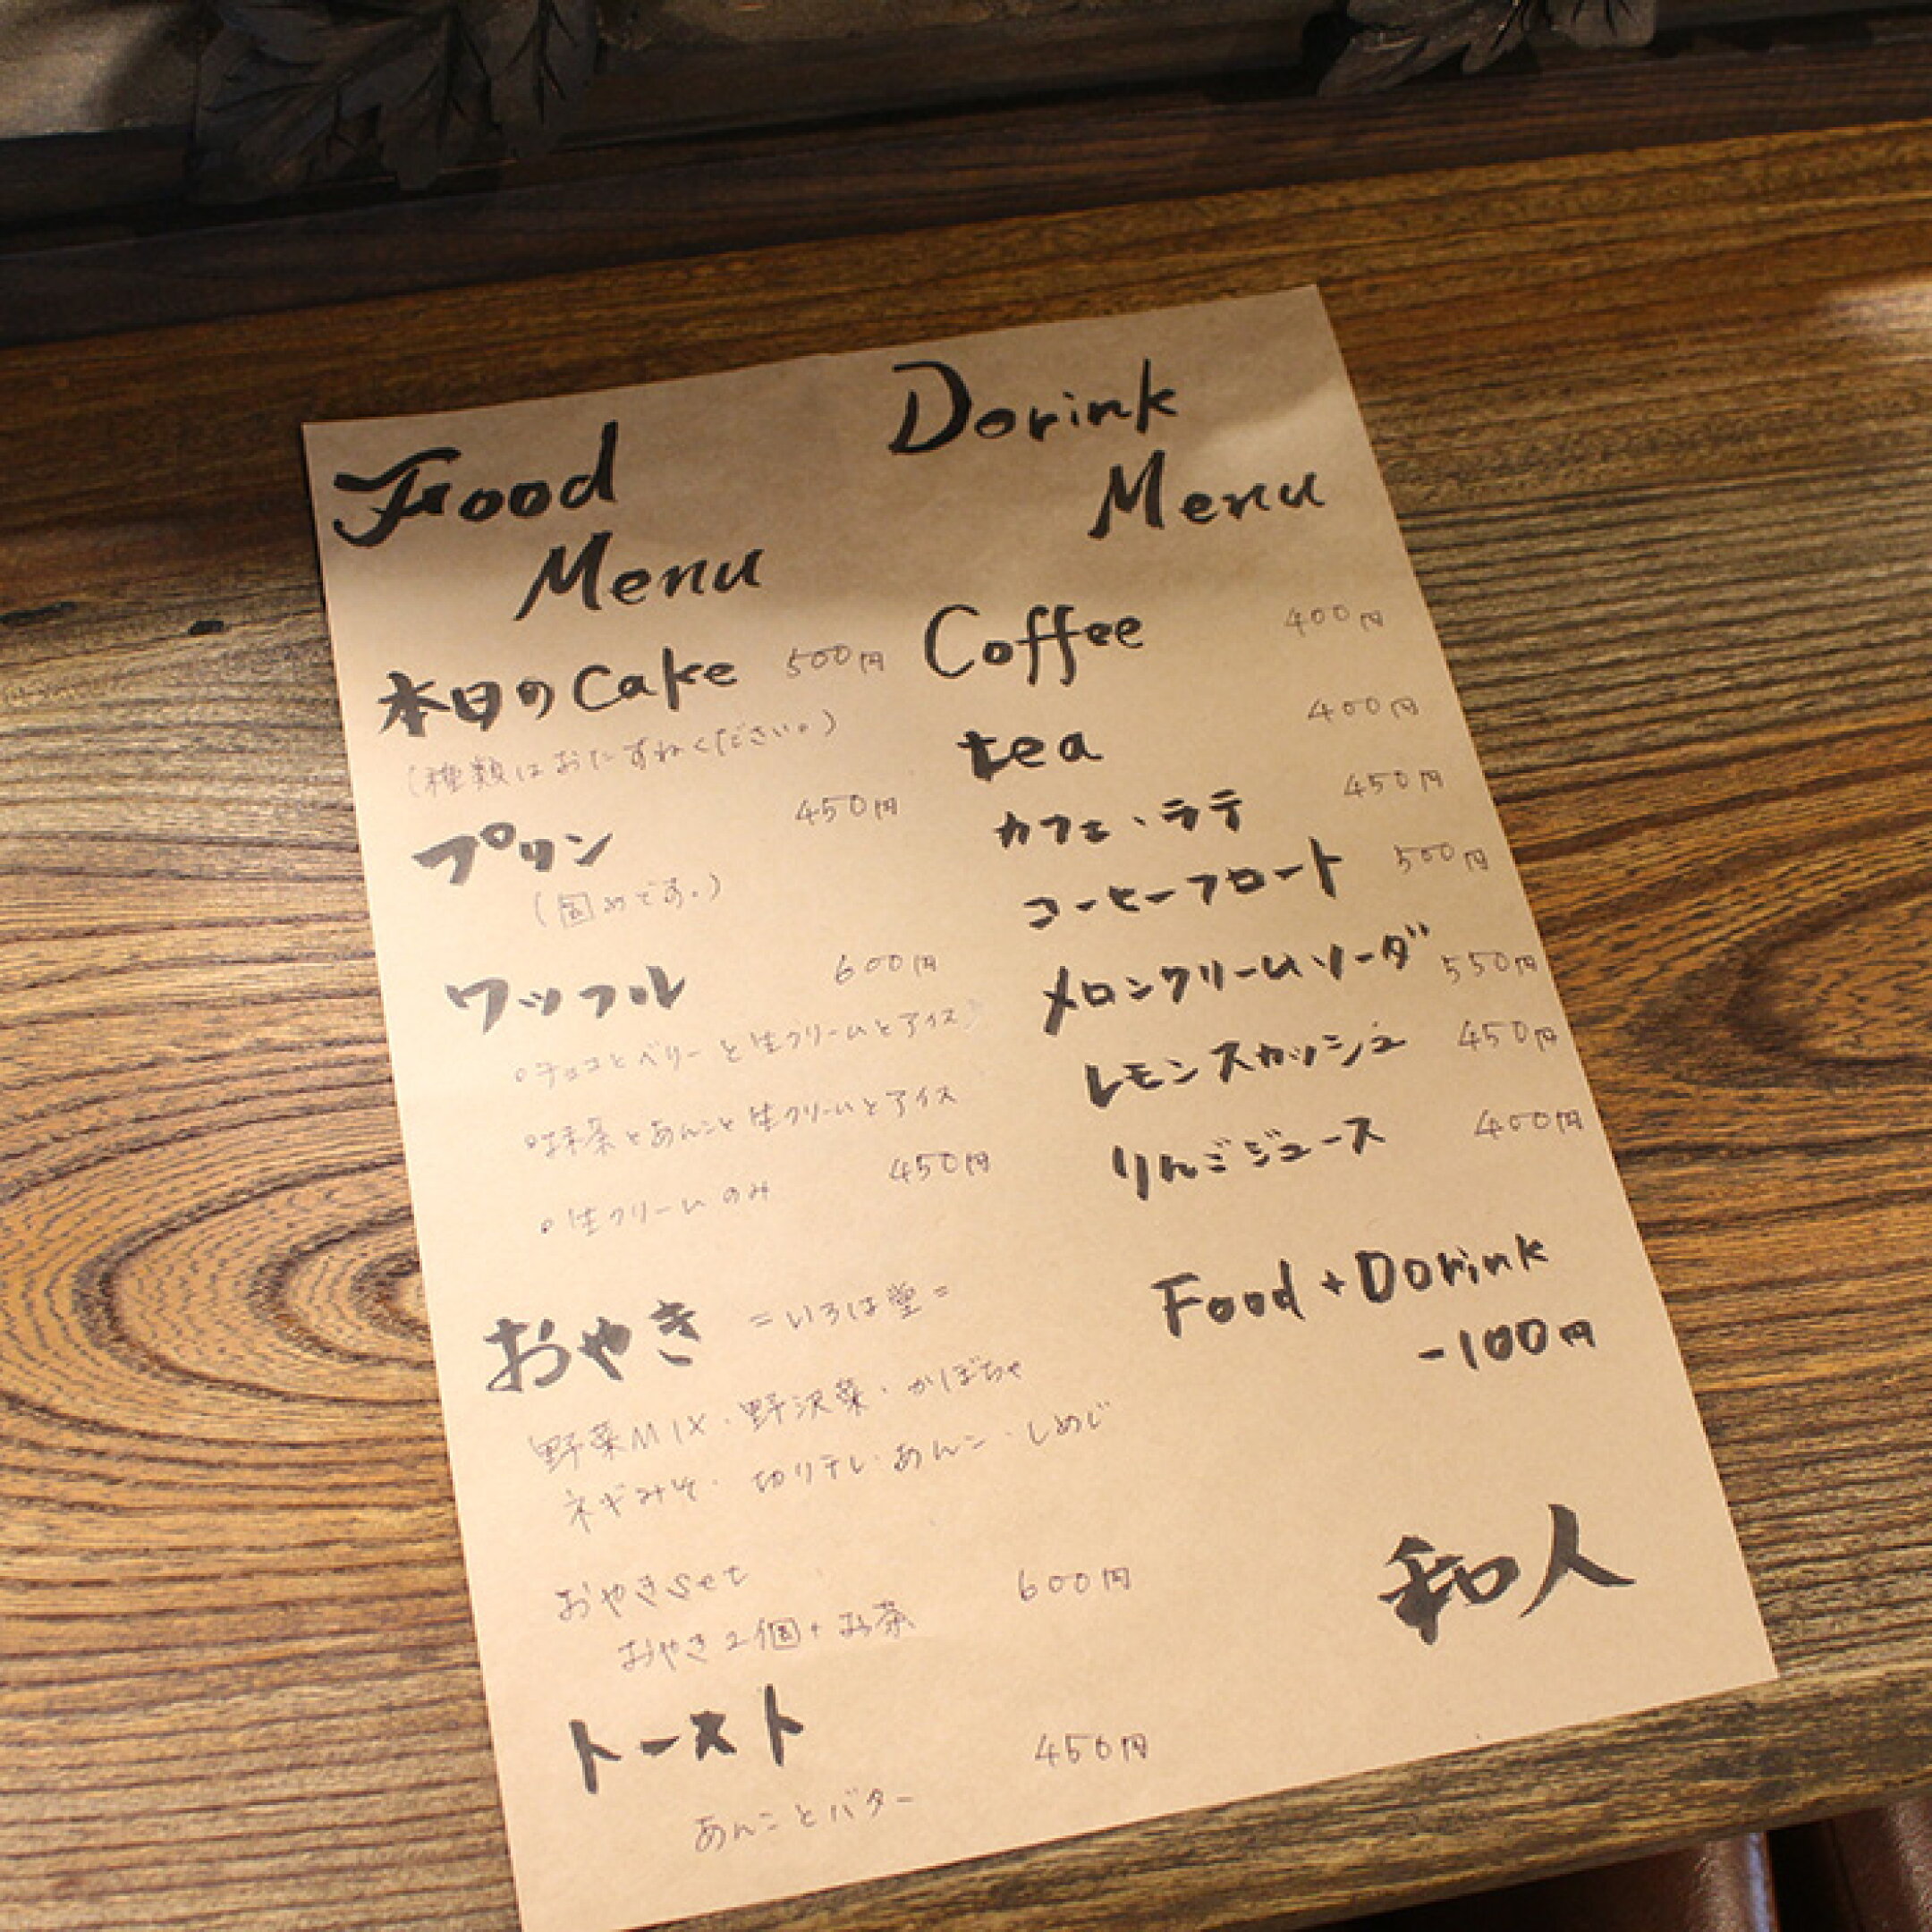 Food
Menu
本日のCake 500円
(種類はおたずねください。)
プリン 450円
(固めです。)
ワッフル 600円
○チョコとベリーと生クリームとアイス
○抹茶とあんこと生クリームとアイス
○生クリームのみ 450円
おやき =いろは堂=
野菜MIX・野沢菜・かぼちゃ
ネギみそ・切りテレ・あんこ・しめじ
おやきset 600円
おやき2個+お茶
トースト 450円
あんことバター
Dorink
Menu
Coffee 400円
tea 400円
カフェ・ラテ 450円
コーヒーフロート 500円
メロンクリームソーダ 550円
レモンスカッシュ 450円
りんごジュース 400円
Food+Dorink
-100円
和人